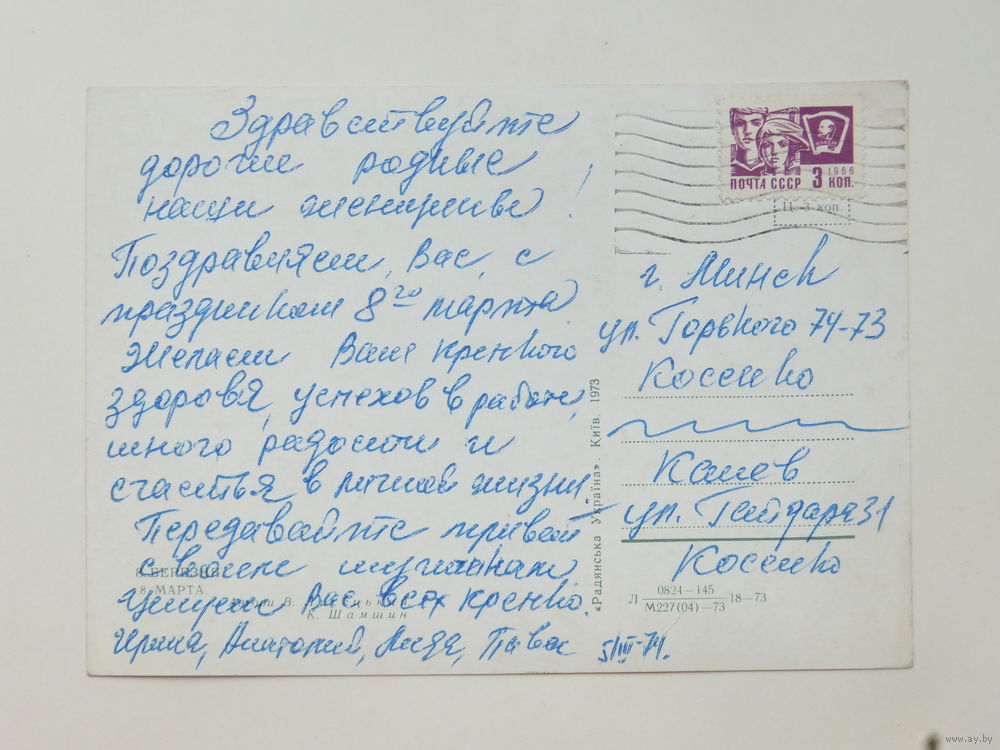 Здравствуйте
дорогие родные
наши женщины!
Поздравляем Вас, с
праздником 8го марта
Желаем Вам крепкого
здоровья, успехов в работе,
много радости и
счастья в личной жизни!
Передавайте привет
своим мужчинам
Целуем Вас всех крепко.
Ирина, Анатолий, Лида, Павел 5/III-74.
8 БЕРЕЗНЯ
8 МАРТА.
Автори В.
К. Шамшин
«Радянська Україна». Київ. 1973
1966
ПОЧТА СССР 3 КОП.
ВЛКСМ
П-3 коп
г. Минск
ул. Горького 74-73
Косенко
Канев
ул. Гайдара 31
Косенко
Л 0824—145 18—73
М227(04)—73
www.ay.by